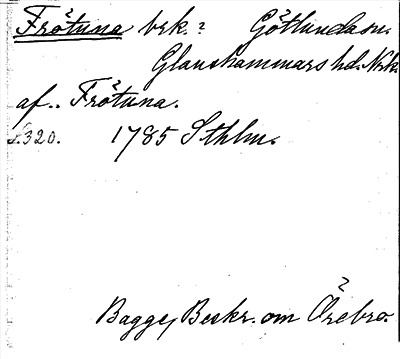 Frötuna brk.: Götlundasn.
Glanshammars hd. Nrk.
af.. Frötuna.
S.320. 1785 Sthlm.
Bagge, Beskr. om Örebro.